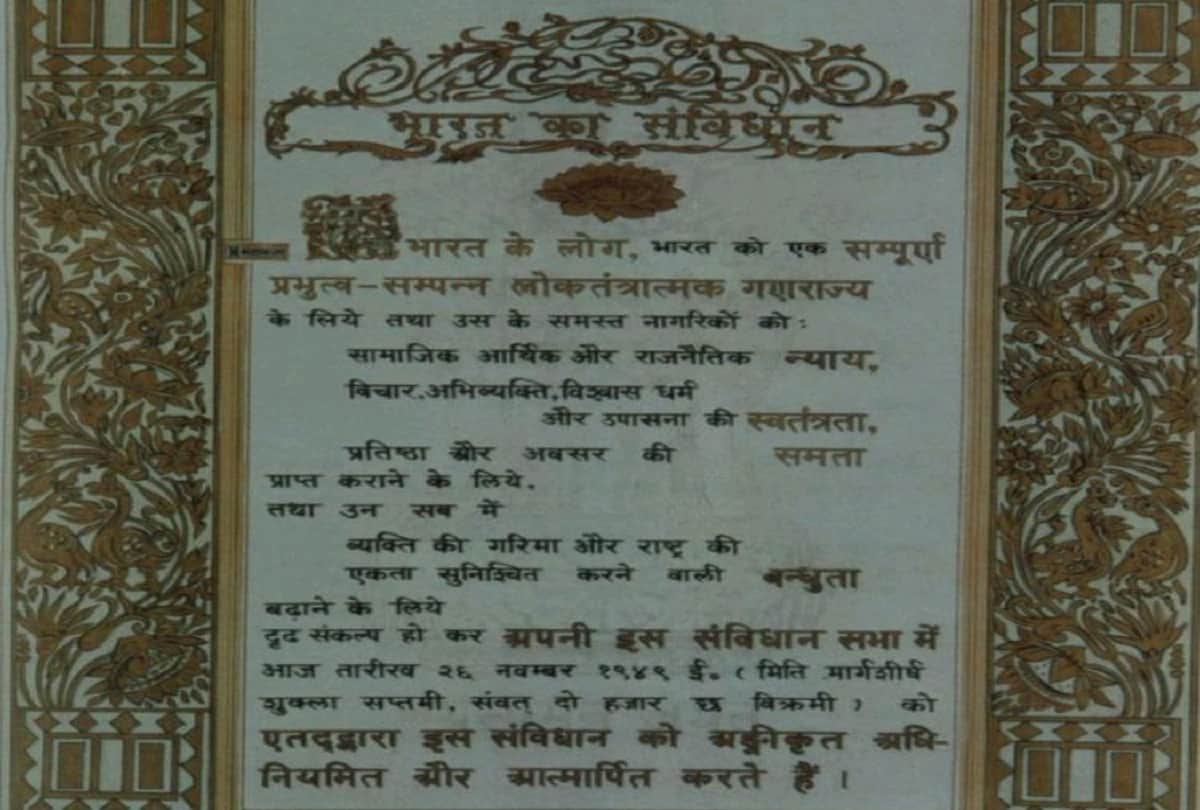 भारत का संविधान
भारत के लोग, भारत को एक सम्पूर्ण
प्रभुत्व-सम्पन्न लोकतंत्रात्मक गणराज्य
के लिये तथा उस के समस्त नागरिकों को:
सामाजिक आर्थिक और राजनैतिक न्याय,
विचार,अभिव्यक्ति,विश्वास धर्म
और उपासना की स्वतंत्रता,
प्रतिष्ठा और अवसर की समता
प्राप्त कराने के लिये,
तथा उन सब में
व्यक्ति की गरिमा और राष्ट्र की
एकता सुनिश्चित करने वाली बन्धुता
बढ़ाने के लिये
दृढ संकल्प हो कर अपनी इस संविधान सभा में
आज तारीख २६ नवम्बर १९४९ ई॰ (मिति मार्गशीर्ष
शुक्ला सप्तमी, संवत् दो हजार छ विक्रमी) को
एतद्द्वारा इस संविधान को अङ्गीकृत अधि-
नियमित और आत्मार्पित करते हैं ।